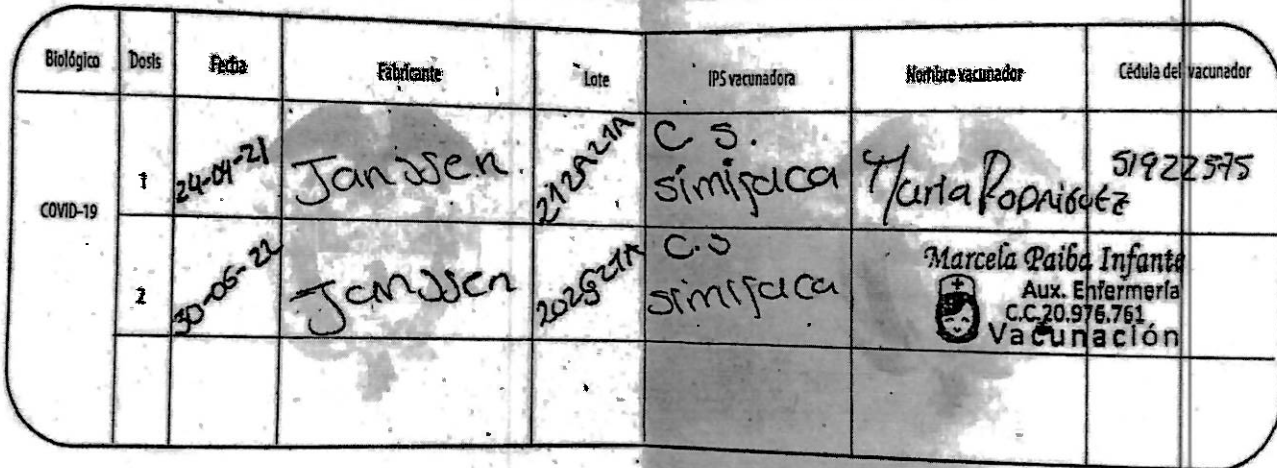 Biológico Dosis Fecha Fabricante Lote IPS vacunadora Nombre vacunador Cédula del vacunador
COVID-19
1 24-04-21 Janssen. 212A21A C S. simijaca Maria Rodriguez 51922575
2 30-06-22 Janssen C.S simijaca
Marcela Paiba Infante
Aux. Enfermería
C.C.20.976.761
Vacunación